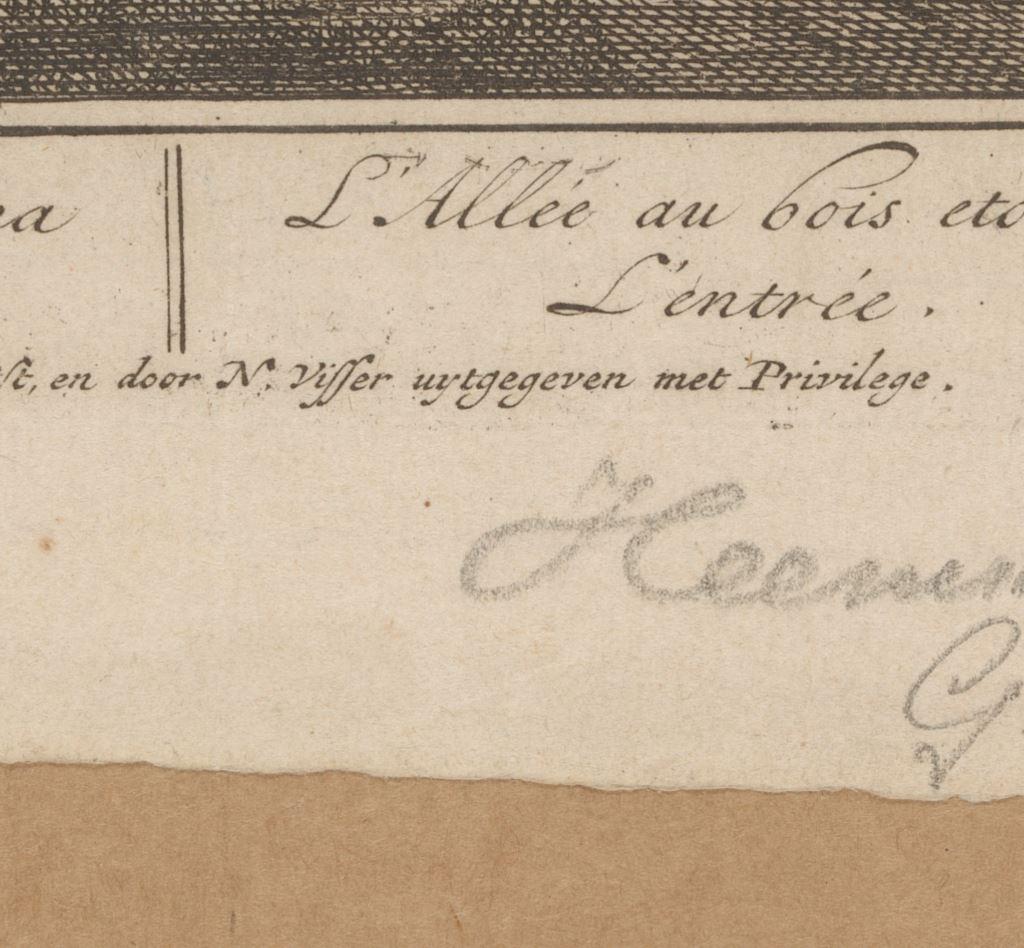 L'Allée au bois
L'entrée.
en door N. Visser uytgegeven met Privilege.